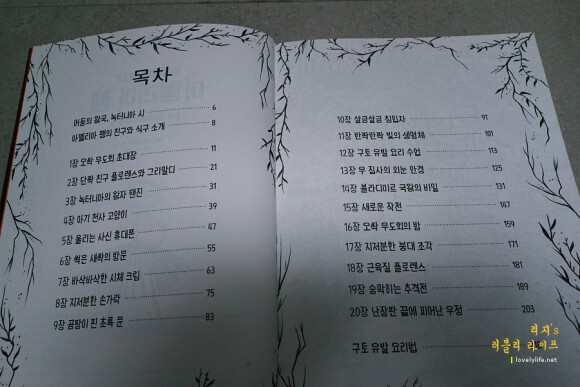 목차
어둠의 왕국, 녹터니아 시 6
아멜리아 팽의 친구와 식구 소개 8
1장 오싹 무도회 초대장 11
2장 단짝 친구 플로렌스와 그리말디 21
3장 녹터니아의 왕자 탠진 31
4장 아기 천사 고양이 39
5장 울리는 사신 휴대폰 47
6장 썩은 새싹의 방문 55
7장 바삭바삭한 시체 크림 63
8장 지저분한 손가락 75
9장 곰팡이 핀 초록 문 83
10장 살금살금 침입자 91
11장 반짝반짝 빛의 생명체 101
12장 구토 유발 요리 수업 113
13장 무 집사의 외눈 안경 125
14장 블라디미르 국왕의 비밀 131
15장 새로운 작전 147
16장 오싹 무도회의 밤 159
17장 지저분한 붕대 조각 171
18장 근육질 플로렌스 181
19장 숨막히는 추격전 189
20장 난장판 끝에 피어난 우정 203
구토 유발 요리법
리지's
러블리 라이프
lovelylife.net